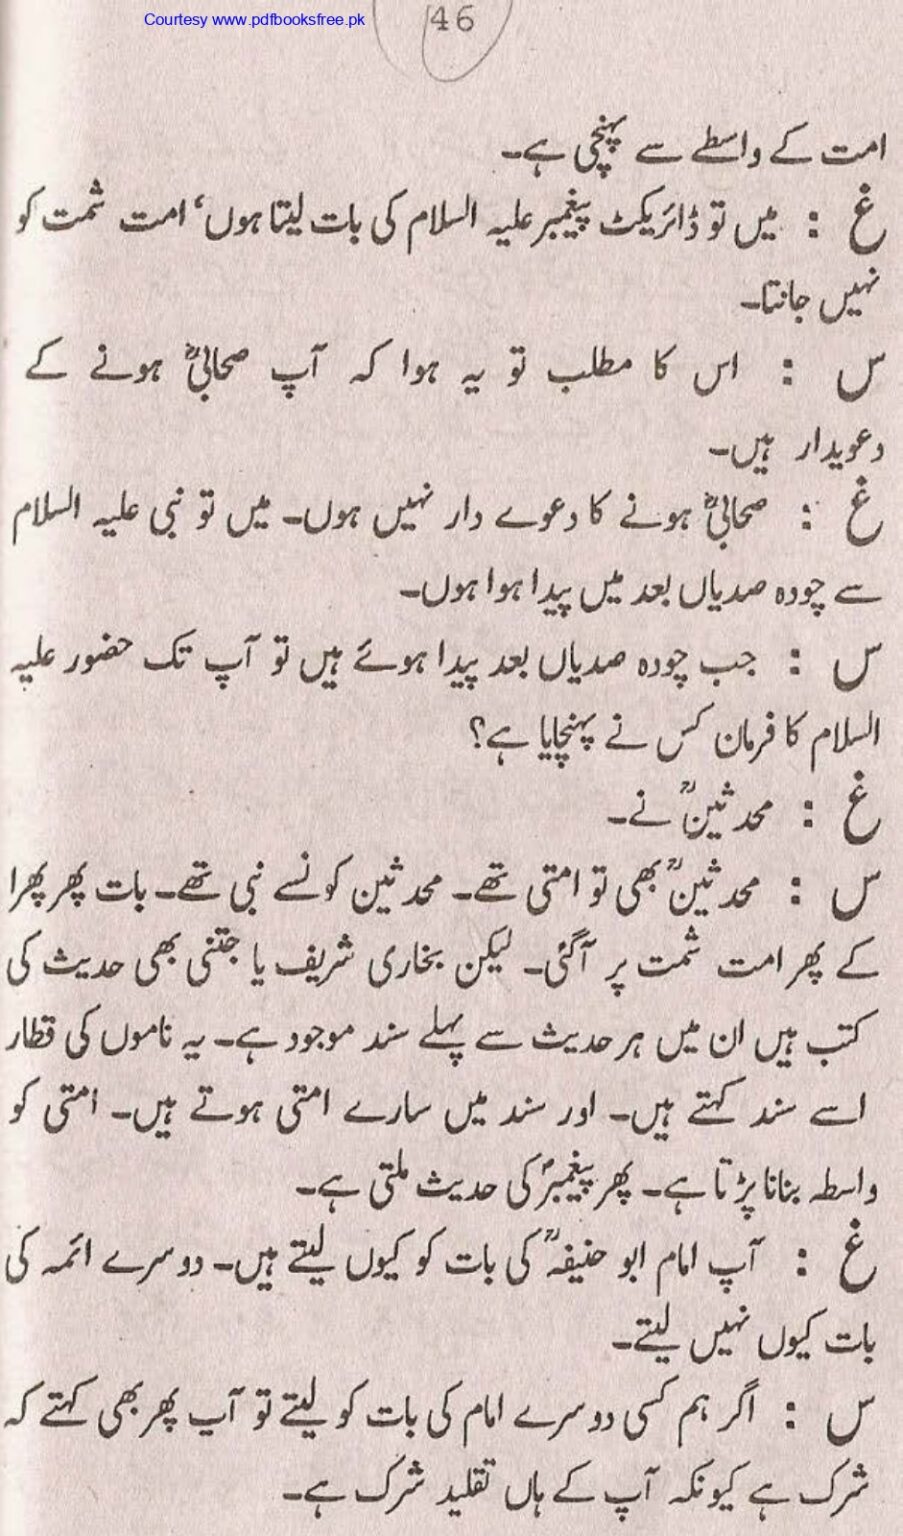 Courtesy www.pdfbooksfree.pk
46
امت کے واسطے سے پہنچی ہے۔
غ : میں تو ڈائریکٹ پیغمبر علیہ السلام کی بات لیتا ہوں، امت شمت کو
نہیں جانتا۔
س : اس کا مطلب تو یہ ہوا کہ آپ صحابیؓ ہونے کے
دعویدار ہیں۔
غ : صحابیؓ ہونے کا دعوے دار نہیں ہوں۔ میں تو نبی علیہ السلام
سے چودہ صدیاں بعد میں پیدا ہوا ہوں۔
س : جب چودہ صدیاں بعد پیدا ہوئے ہیں تو آپ تک حضور علیہ
السلام کا فرمان کس نے پہنچایا ہے؟
غ : محدثینؒ نے۔
س : محدثینؒ بھی تو امتی تھے۔ محدثین کونسے نبی تھے۔ بات پھر پھرا
کے پھر امت شمت پر آگئی۔ لیکن بخاری شریف یا جتنی بھی حدیث کی
کتب ہیں ان میں ہر حدیث سے پہلے سند موجود ہے۔ یہ ناموں کی قطار
اسے سند کہتے ہیں۔ اور سند میں سارے امتی ہوتے ہیں۔ امتی کو
واسطہ بنانا پڑتا ہے۔ پھر پیغمبرؐ کی حدیث ملتی ہے۔
غ : آپ امام ابو حنیفہؒ کی بات کو کیوں لیتے ہیں۔ دوسرے ائمہ کی
بات کیوں نہیں لیتے۔
س : اگر ہم کسی دوسرے امام کی بات کو لیتے تو آپ پھر بھی کہتے کہ
شرک ہے کیونکہ آپ کے ہاں تقلید شرک ہے۔